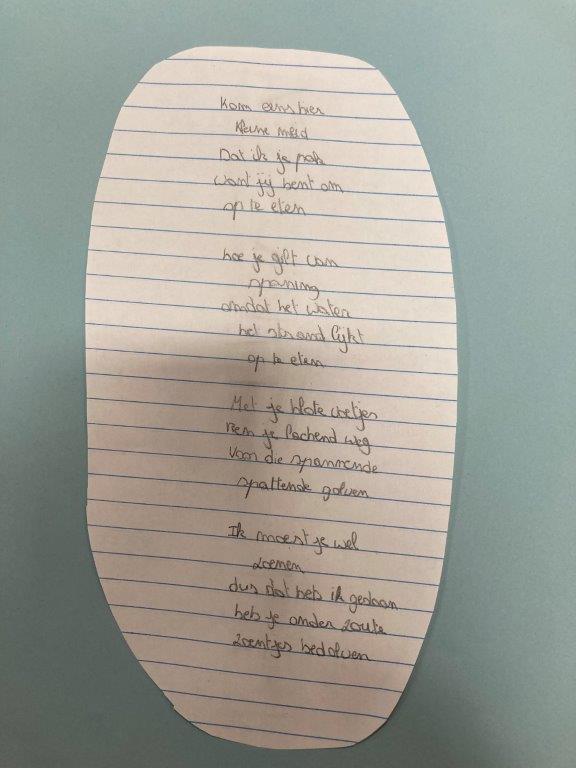 Kom eens hier
kleine meid
Dat ik je pak
want jij bent om
op te eten
hoe je gilt van
spaning
omdat het water
het strand lijkt
op te eten
Met je blote voetjes
Ren je lachend weg
Voor die spannende
spattende golven
Ik moest je wel
zoenen
dus dat heb ik gedaan
heb je onder zoute
zoentjes bedolven